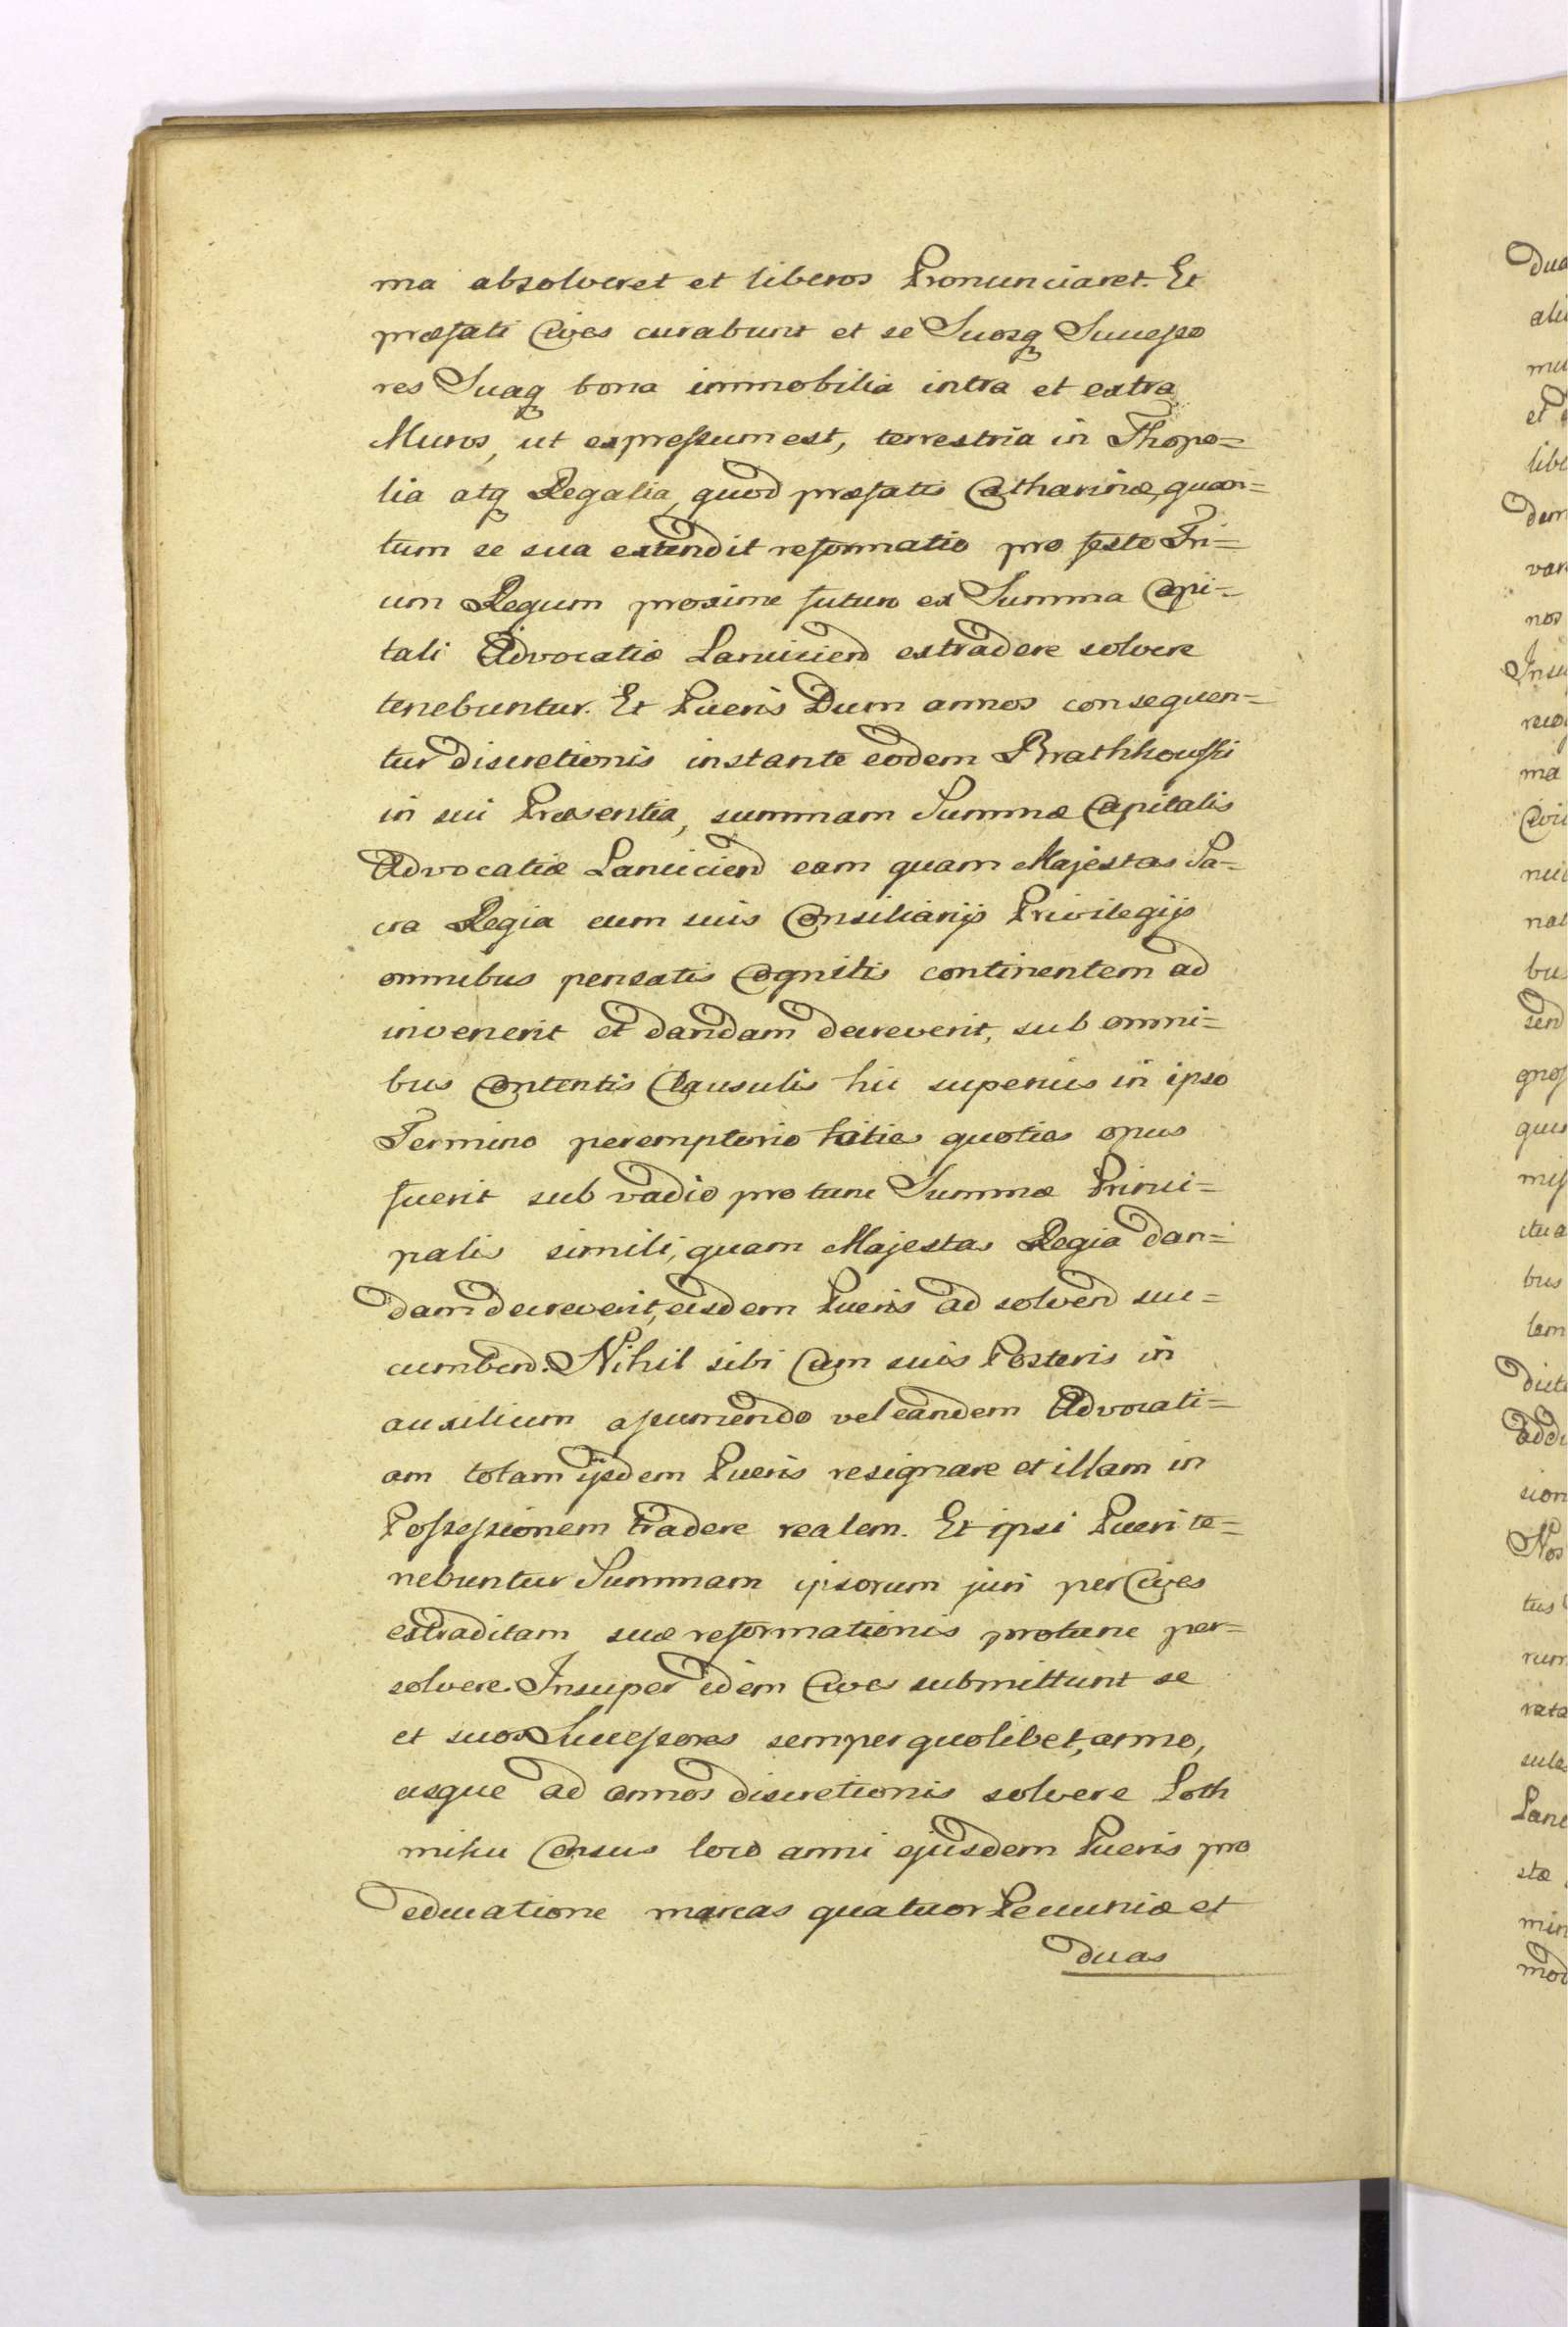 ma absolveret et liberos Pronunciaret. Et
præfati Cives curabunt et se Suosq Succeſso
res Suaq bona immobilia intra et extra
Muros, ut expreſsum est, terrestria in Thopo=
lia atq Regalia, quod præfatis Catharinæ, quan=
tum se sua extendit reformatio pro festo Tri=
um Regum proxime futuro ex Summa Capi=
tali Advocatiæ Lanciciend extradere solvere
tenebuntur. Et Pueris Dum annos consequen=
tur discretionis instante eodem Brathkouſki
in sui Præsentia, summam Summæ Capitalis
Advocatiæ Lanciciend eam quam Majestas Sa=
cra Regia cum suis Consiliarijs Privilegijs
omnibus pensatis Cognitis continentem ad
invenerit et dandam decreverit, sub omni=
bus Contentis Clausulis hic superius in ipso
Termino peremptorio toties quoties opus
fuerit sub vadio pro tunc Summæ Princi=
palis simili, quam Majestas Regia dan=
dam decreverit, eisdem Pueris ad solvend suc=
cumbend. Nihil sibi Cum suis Posteris in
auxilium aſsumendo vel eandem Advocati=
am totam ijsdem Pueris resignare et illam in
Poſseſsionem tradere realem. Et ipsi Pueri te=
nebuntur Summam ipsorum juri per Cives
extraditam suæ reformationis protunc per=
solvere. Insuper idem Cives submittunt se
et suos Succeſsores semper quolibet, anno,
usque ad annos discretionis solvere Poth
mihu Census loco anni ejusdem Pueris pro
educatione marcas quatuor Pecuniæ et
duas

Dua
alii
mu
et
libe
dem
van
nos
Insu
reco
ma
Civi
nui
nat
bus
send
gnoſ
quis
miſ
itua
bus
tam
dict
addu
sion
Nos
tus
rum
rata
sulas
Lanc
stæ
min
mod